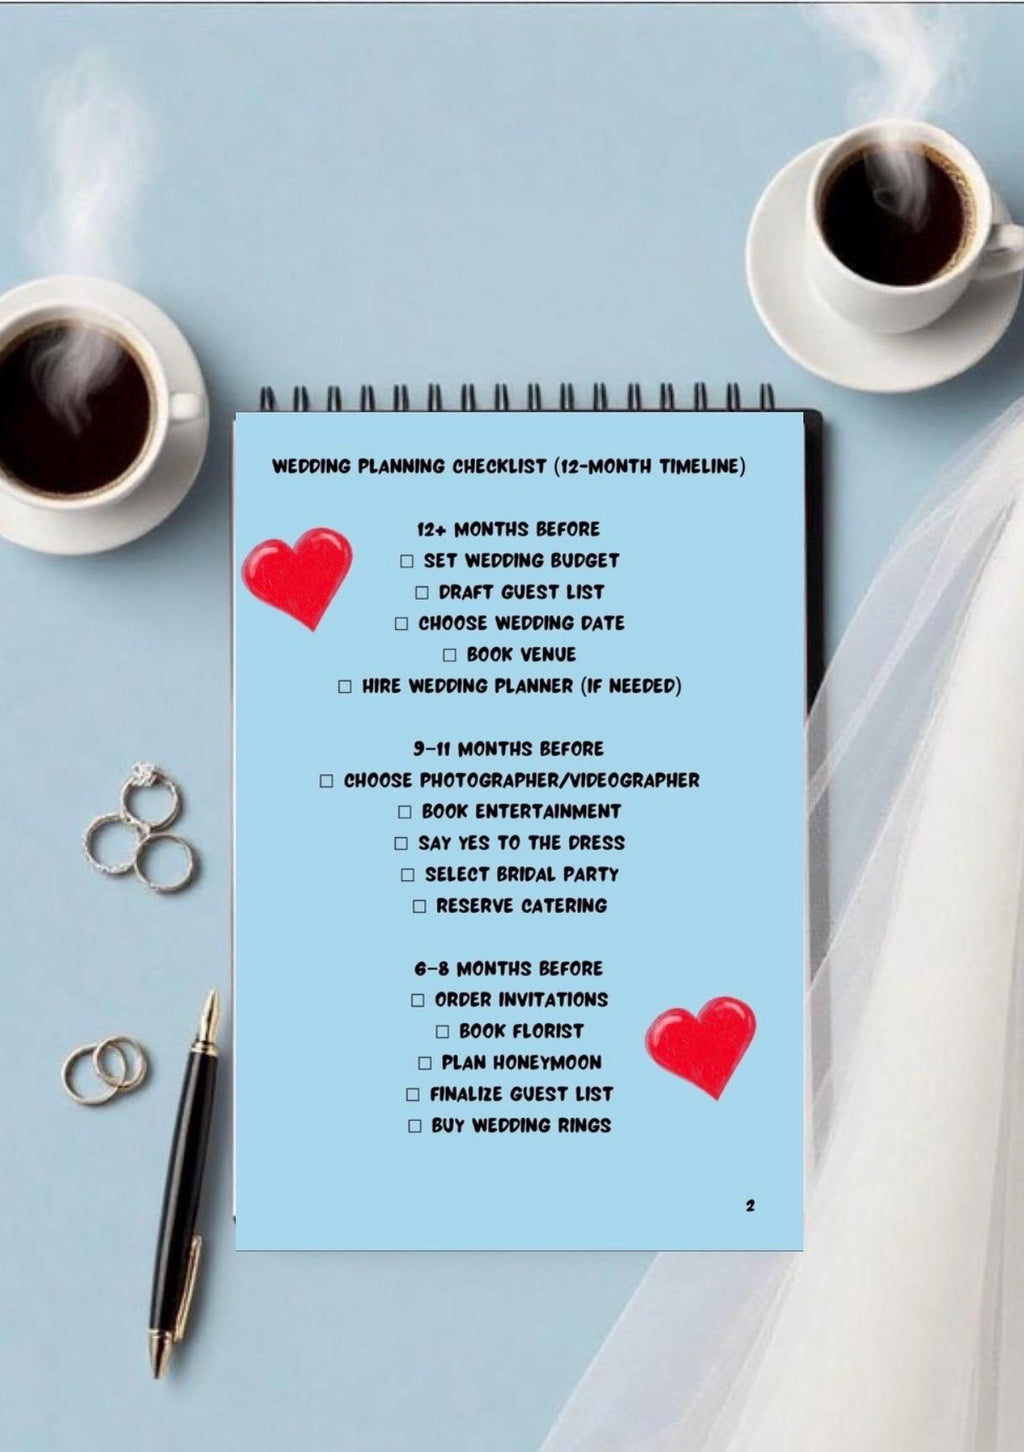 WEDDING PLANNING CHECKLIST (12-MONTH TIMELINE)
12+ MONTHS BEFORE
☐ SET WEDDING BUDGET
☐ DRAFT GUEST LIST
☐ CHOOSE WEDDING DATE
☐ BOOK VENUE
☐ HIRE WEDDING PLANNER (IF NEEDED)
9-11 MONTHS BEFORE
☐ CHOOSE PHOTOGRAPHER/VIDEOGRAPHER
☐ BOOK ENTERTAINMENT
☐ SAY YES TO THE DRESS
☐ SELECT BRIDAL PARTY
☐ RESERVE CATERING
6-8 MONTHS BEFORE
☐ ORDER INVITATIONS
☐ BOOK FLORIST
☐ PLAN HONEYMOON
☐ FINALIZE GUEST LIST
☐ BUY WEDDING RINGS
2